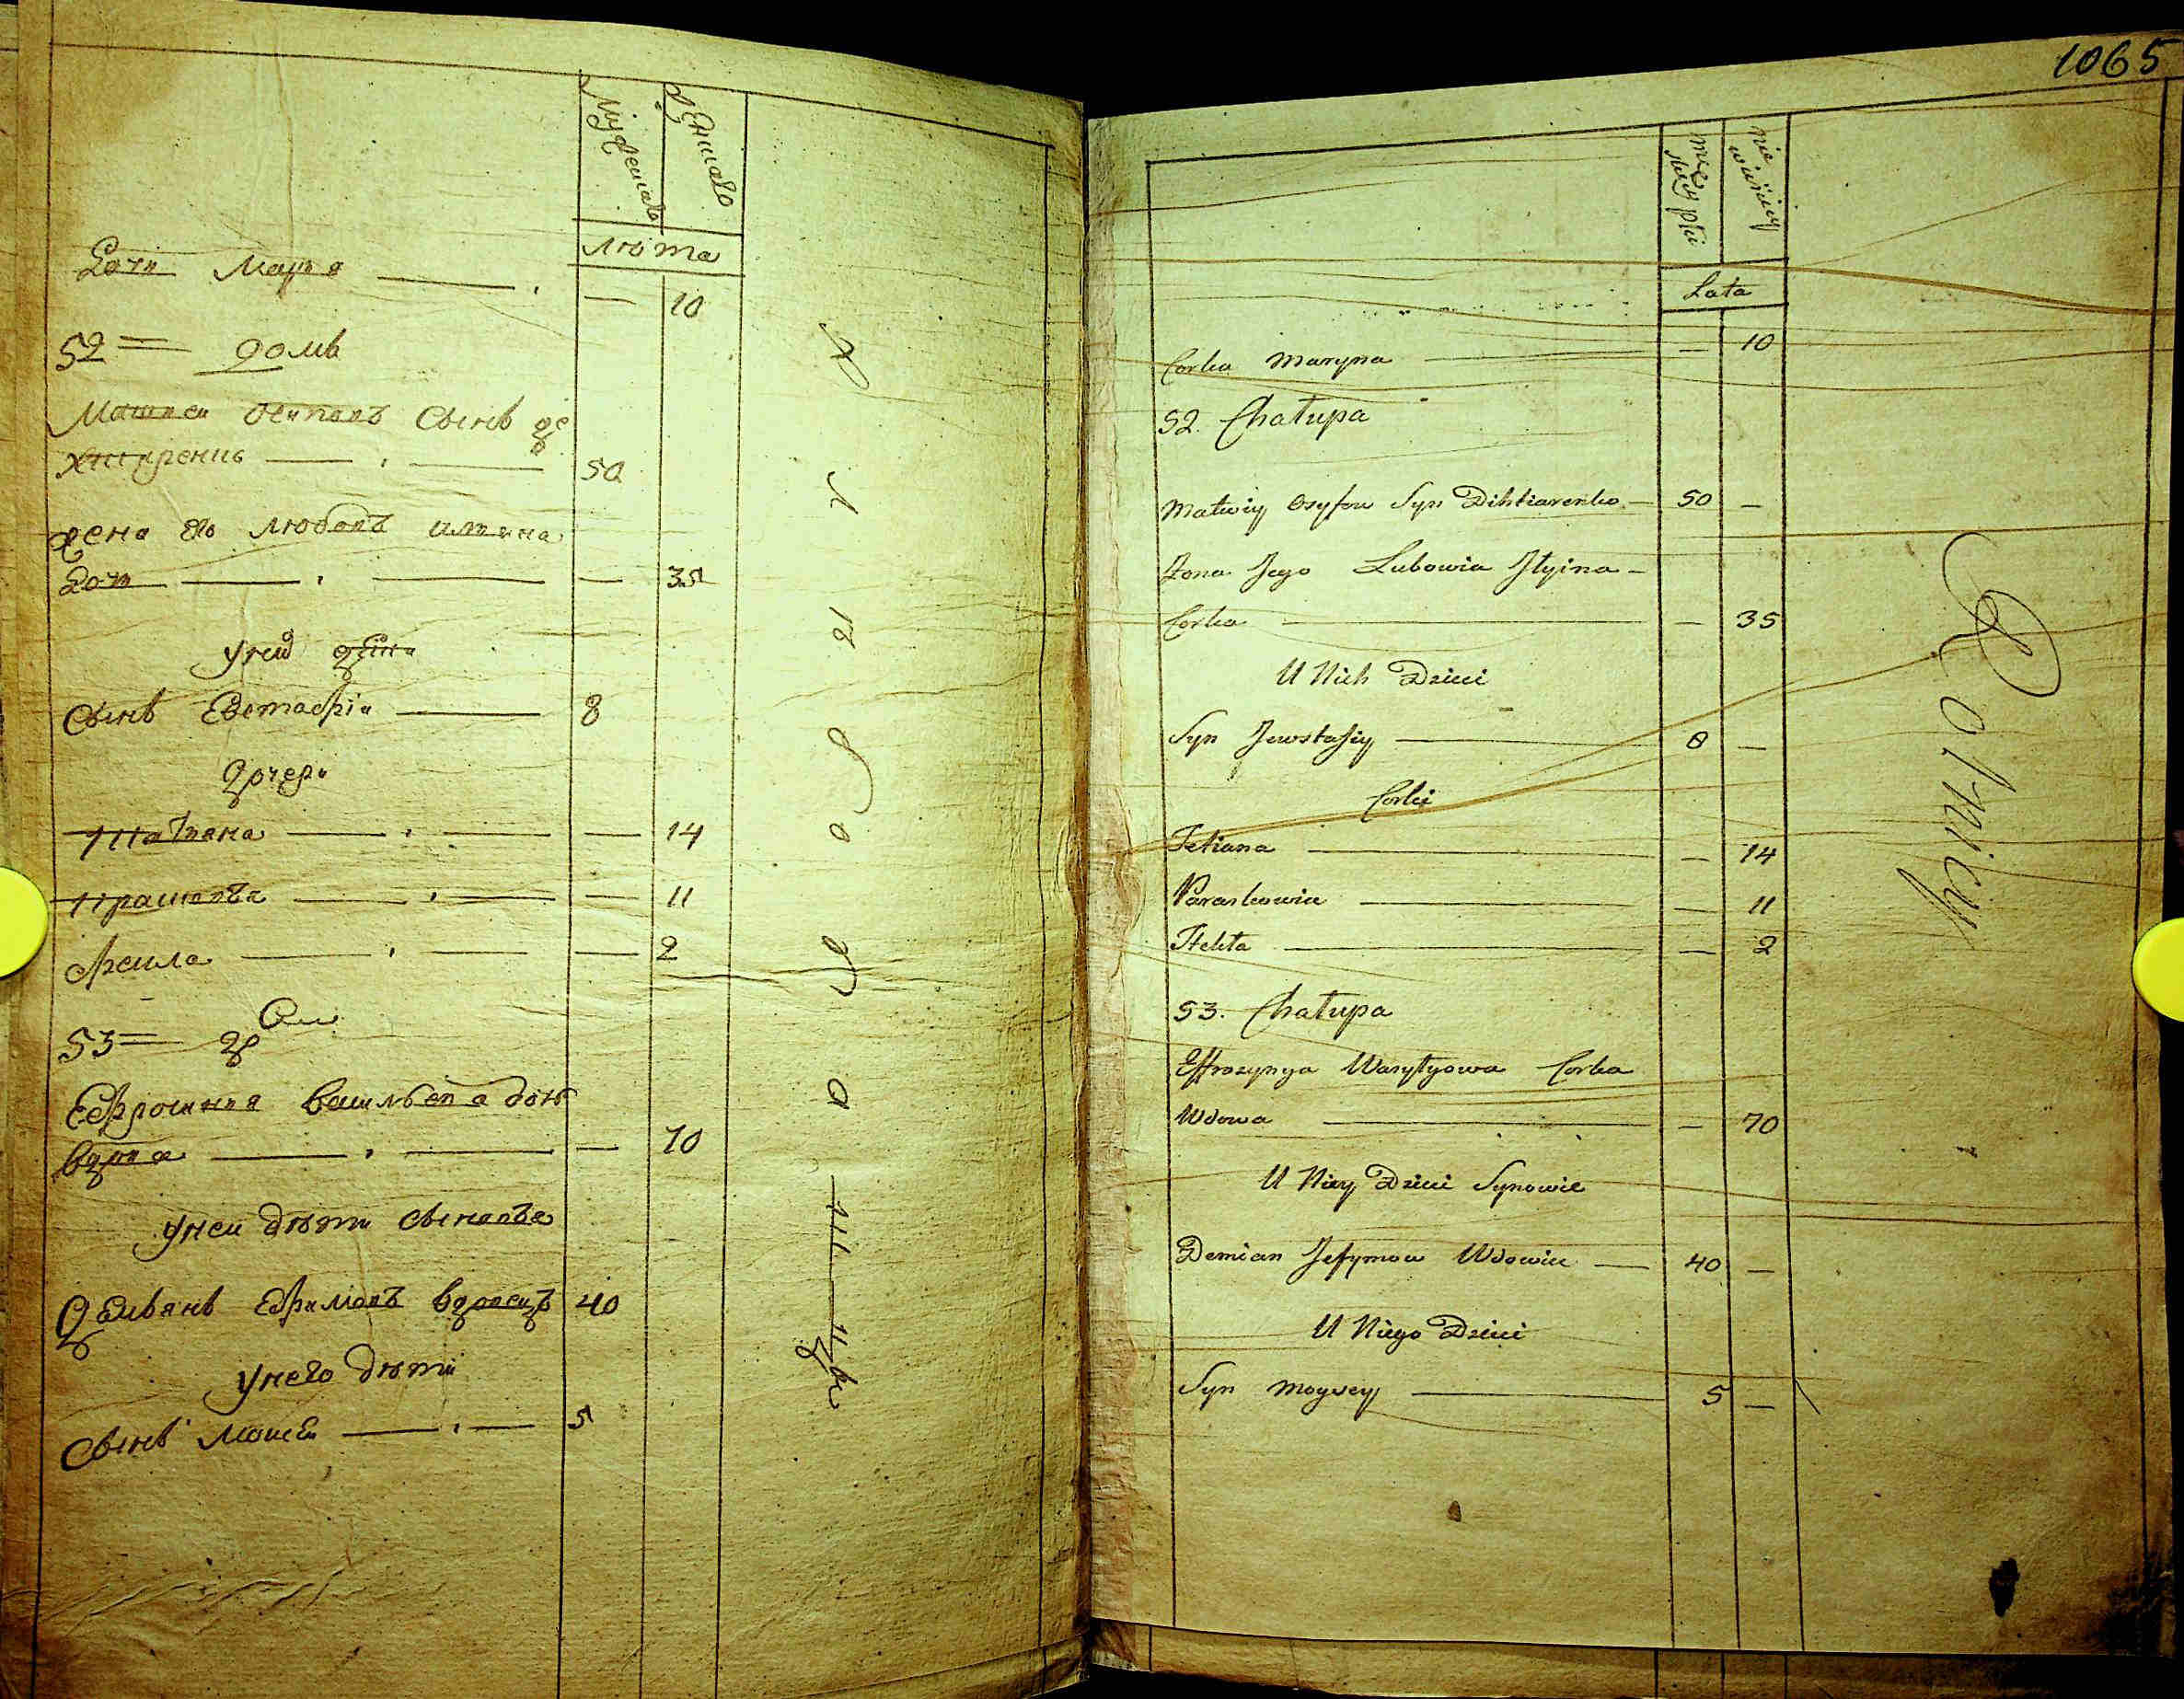 Мужеска
Женска
Лѣта
Дочь Марья — 10
52 = домъ
Матвеи Осиповъ Сынъ де
хтяренко — 50
жена его Любовъ Ильина
дочь — — 35
у них дети
Сынъ Евстафіи — 8
дочери
Татьяна — — 14
Прасковья — — 11
Фекла — — 2
53 = дом
Ефросиния Васильева дочь
вдова — — 70
у неи дѣти сыновья
Демьянъ Ефимовъ вдовецъ 40
у него дѣти
Сынъ Моисеи — 5
1065
męż
kiey płci
nie
wieściey
Lata
Corka Maryna — — 10
52. Chałupa
Matwiy Osyfow Syn Dihtiarenko — 50 —
Żona Jego Lubowia Jłyina —
Corka — — 35
U Nich Dzieci
Syn Jewstafiy — 8 —
Corki
Tetiana — — 14
Paraskowia — — 11
Tekła — — 2
53. Chałupa
Effrozynya Wasylyowa Corka
Wdowa — — 70
U Niey Dzieci Synowie
Demian Jefymow Wdowiec — 40 —
U Niego Dzieci
Syn Moysey — 5 —
Rolnicy